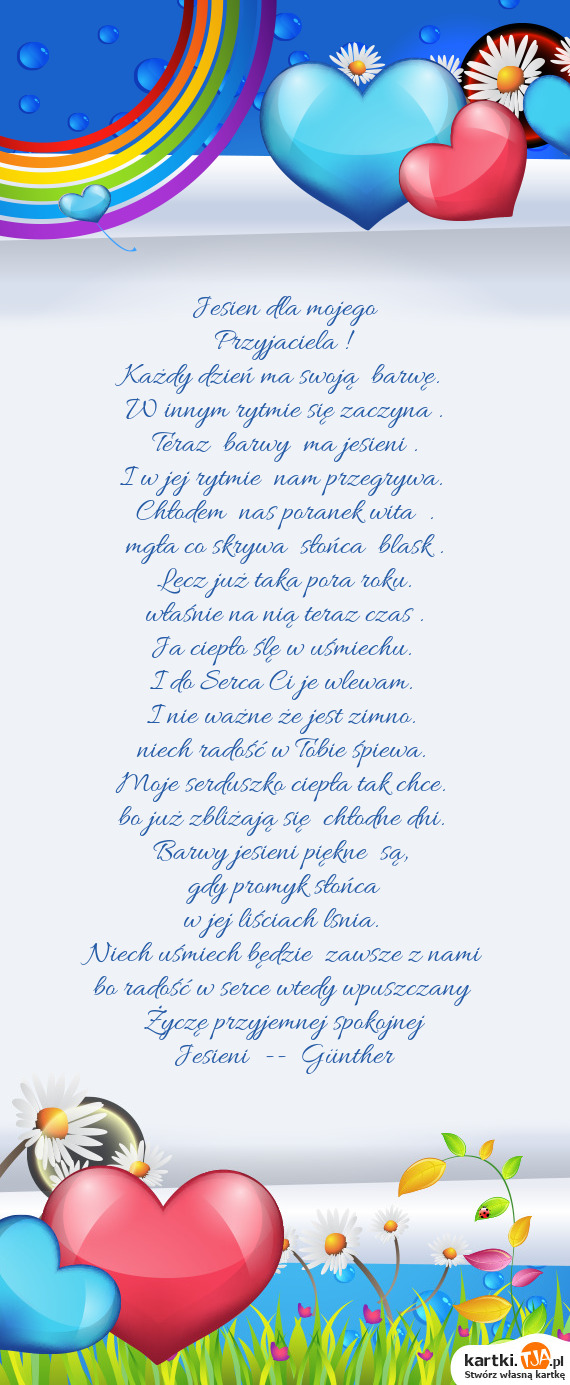 Jesien dla mojego
Przyjaciela !
Każdy dzień ma swoją barwę.
W innym rytmie się zaczyna .
Teraz barwy ma jesieni .
I w jej rytmie nam przegrywa.
Chłodem nas poranek wita .
mgła co skrywa słońca blask .
Lecz już taka pora roku.
właśnie na nią teraz czas .
Ja ciepło ślę w uśmiechu.
I do Serca Ci je wlewam.
I nie ważne że jest zimno.
niech radość w Tobie śpiewa.
Moje serduszko ciepła tak chce.
bo już zbliżają się chłodne dni.
Barwy jesieni piękne są,
gdy promyk słońca
w jej liściach lśnia.
Niech uśmiech będzie zawsze z nami
bo radość w serce wtedy wpuszczany
Życzę przyjemnej spokojnej
Jesieni -- Günther
kartki.TJA.pl
Stwórz własną kartkę